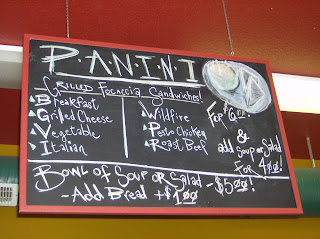 P·A·N·I·N·I
GRILLED Focaccia Sandwiches!
Breakfast
Grilled Cheese
Vegetable
Italian
Wildfire
Pesto Chicken
Roast Beef
For $6.00
&
add soup or salad
For 4.00!
Bowl of Soup or Salad -$5.00!
-Add Bread +$1.00